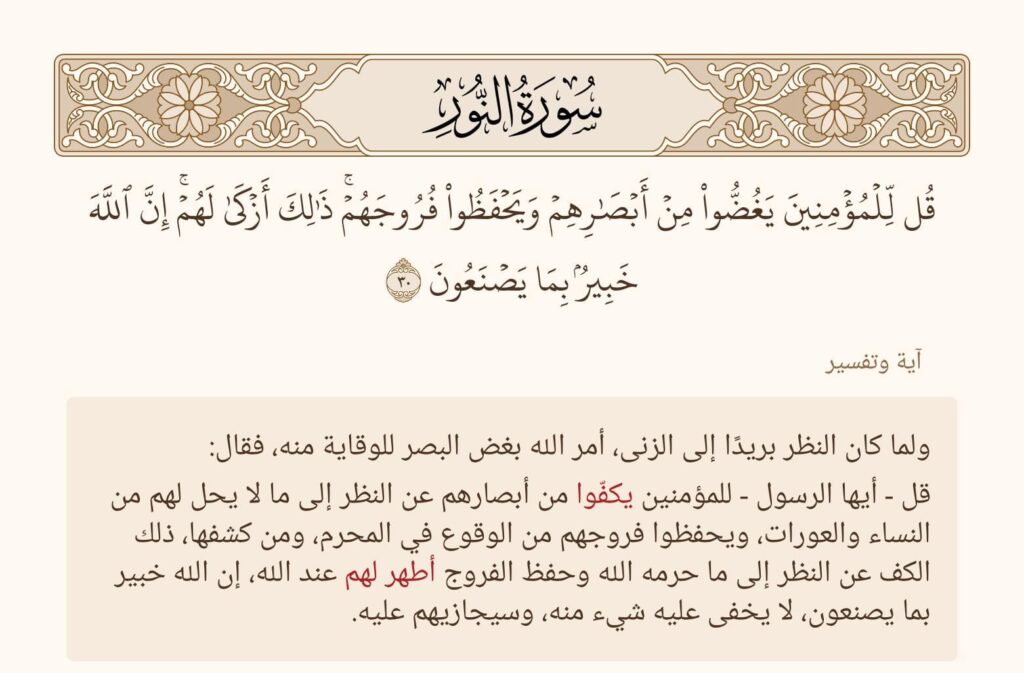 سُورَةُ النُّورِ
قُل لِّلْمُؤْمِنِينَ يَغُضُّوا۟ مِنْ أَبْصَـٰرِهِمْ وَيَحْفَظُوا۟ فُرُوجَهُمْ ۚ ذَٰلِكَ أَزْكَىٰ لَهُمْ ۚ إِنَّ ٱللَّهَ
خَبِيرٌۢ بِمَا يَصْنَعُونَ ٣٠
آية وتفسير
ولما كان النظر بريدًا إلى الزنى، أمر الله بغض البصر للوقاية منه، فقال:
قل - أيها الرسول - للمؤمنين يكفّوا من أبصارهم عن النظر إلى ما لا يحل لهم من
النساء والعورات، ويحفظوا فروجهم من الوقوع في المحرم، ومن كشفها، ذلك
الكف عن النظر إلى ما حرمه الله وحفظ الفروج أطهر لهم عند الله، إن الله خبير
بما يصنعون، لا يخفى عليه شيء منه، وسيجازيهم عليه.